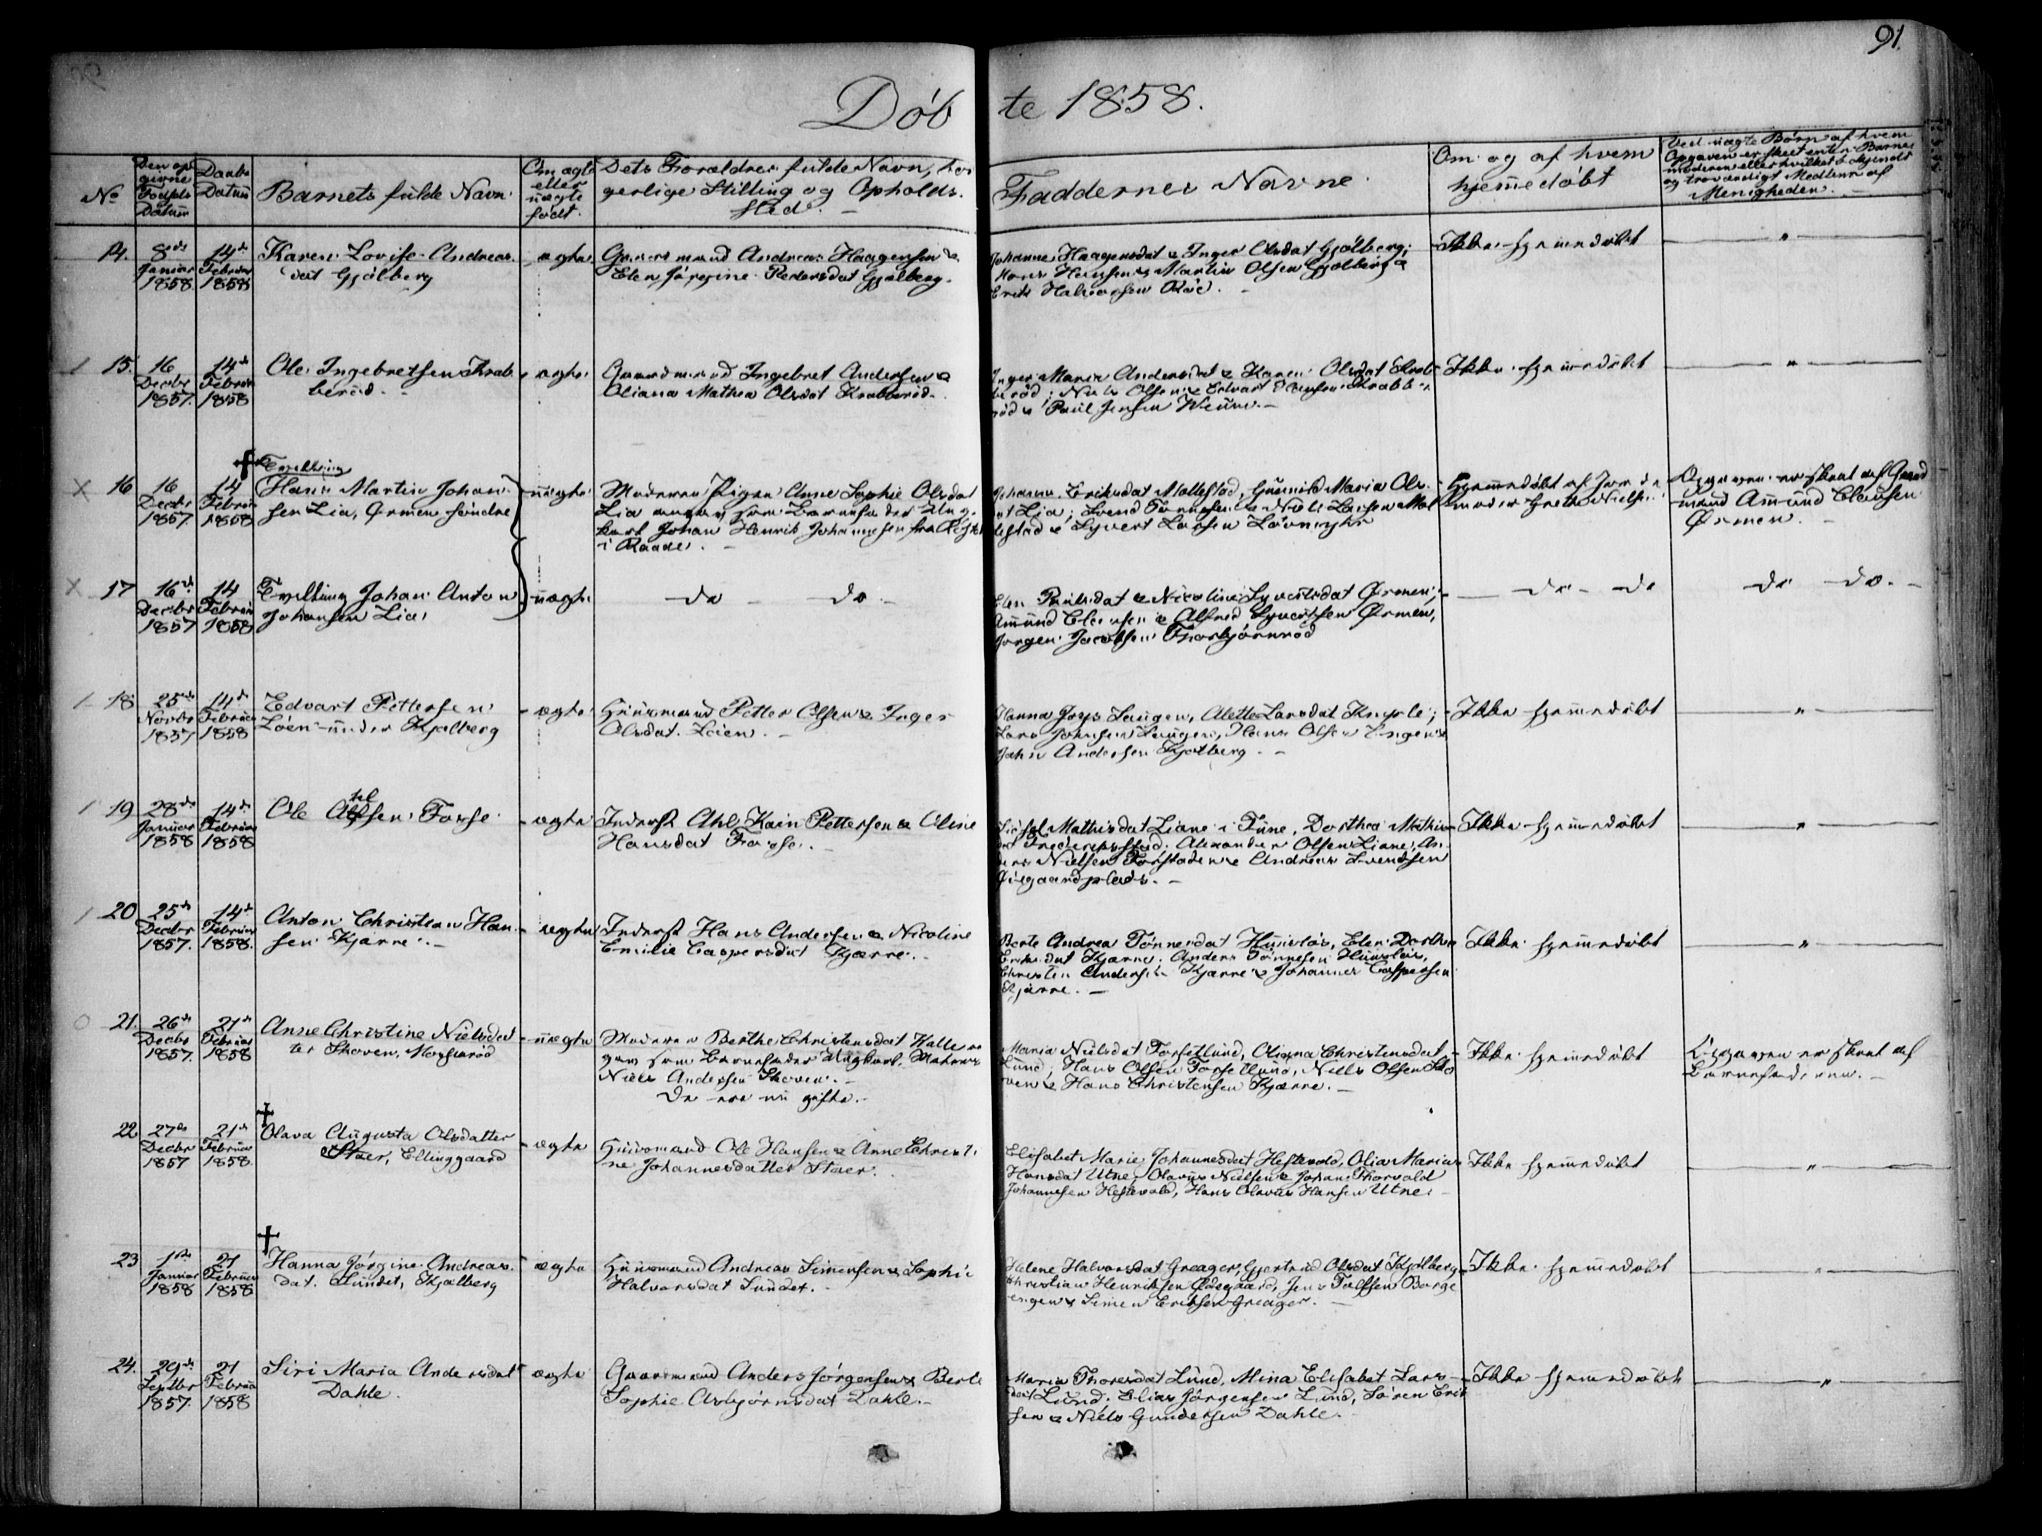 91.
Døbte 1858.
No
Den opgivne Fødsels Datum
Daabs Datum
Barnets fulde Navn.
Om ægte eller uægte født.
Dets Forældres fulde Navn, borgerlige Stilling og Opholds-
sted. —
Faddernes Navne.
Om og af hvem
hjemmedøbt
Ved uægte Børn af hvem
Opgaven er skeet enten Barnemoderen eller hvilket bekjendt
og troværdigt Medlem af
Menigheden. —
14. 8de Januar 1858 14de Februar 1858
Karen Lovise Andreas-
dat Gjølberg
ægte
Gaardmand Andreas Haagensen &
Elen Jørgine Pedersdat Gjølberg.
Johanne Haagensdat & Inger Olsdat Gjølberg;
Hans Hansen & Martin Olsen Gjølberg &
Erik Halvorsen Röd. —
Ikke hjemmedøbt
"
15. 16 Decbr 1857. 14de Februar 1858
Ole Ingebretsen Krab-
berød. —
ægte
Gaardmand Ingebret Andersen &
Oliana Mathea Olsdat Krabberød.
Inger Maria Andersdat & Karen Olsdat Krab-
berød; Niels Olsen & Edvart Olausen Krabbe-
rød & Paul Jensen
Ikke hjemmedøbt
"
16 16 Decbr 1857. 14 Februar 1858
Tvilling
Hans Martin Johan-
sen Lia, Ørmen søndre
uægte
Moderen Pigen Anne Sophie Olsdat
Lia angav som Barnefader Ung-
karl Johan Henrik Johannesen fra
i Raade. —
Johanne Eriksdat Mallestad, Gunnild Maria Ols-
dat Lia; Svend Tønnesen & Niels Larsen Mal-
lestad & Syvert Larsen
Hjemmedøbt af Jorde-
moder Grethe Nielsen
Opgaven er skeet af Gaard-
mand Amund Clausen
Ørmen. —
17 16de Decbr 1857 14 Februar 1858
Tvilling Johan Anton
Johansen Lia,
uægte
do — do —
Elen Paulsdat & Nicoline Syvertsdat Ørmen;
Amund Clausen & Alfred Syvertsen Ørmen,
Jørgen Jacobsen Thorbjørnrød
— do — do
do do. —
18. 25de Novbr 1857 14de Februar 1858
Edvart Pettersen
Løen under Kjølberg
ægte
Huusmand Petter Olsen & Inger
Olsdat Løien. —
Hanna Jens Haugen, Alette Larsdat
Lars Johnsen Haugen, Hans Olsen Engen &
John Andersen Kjølberg. —
Ikke hjemmedøbt
"
19 28de Januar 1858 14de Februar 1858
Ole Forse
ægte
Inderst Ahl Kain Pettersen & Oline
Hansdat Forse. —
Mathisdat Liane i Fune, Dorthea Mathis-
dat Frederiksstad. Alexander Olsen Liane, An-
ders Nielsen Forstaden & Andreas Svendsen
Øiegaardplads. —
Ikke hjemmedøbt
"
20 25de Decbr 1857. 14de Februar 1858.
Anton Christian Han-
sen Kjærre. —
ægte
Inderst Hans Andersen & Nicoline
Emilie Caspersdat Kjærre. —
Berte Andrea Tønnesdat Huusløs, Elen Dorthea
Eriksdat Kjærre. Anders Tønnesen Huusløs,
Christen Andersen Kjærre & Johannes Caspersen
Kjærre. —
Ikke hjemmedøbt
"
21. 26de Decbr 1857. 21de Februar 1858
Anne Christine Nielsdat-
ter Skoven,
uægte
Moderen Berthe Christensdat
gav som Barnefader Ungkarl, Matros
Niels Andersen Skoven. —
De ere nu gifte. —
Maria Nielsdat Forsetlund, Oliana Christensdat
Lund; Hans Olsen Forsetlund, Niels Olsen Sko-
ven & Hans Christensen Kjærre. —
Ikke hjemmedøbt
Opgaven er skeet af
Barnefaderen. —
22 27de Decbr 1857 21de Februar 1858.
Olava Augusta Olsdatter
Staer, Ellinggaard
ægte
Huusmand Ole Hansen & Anne Christi-
ne Johannesdatter Staer.
Elisabet Marie Johannesdat Hestevold, Olia Maria
Hansdat Utne. Olaves Nielsen & Johan Thorvald
Johannesen Hestevold, Hans Olaves Hansen Utne. —
Ikke hjemmedøbt
"
23 1ste Januar 1858 21 Februar 1858
Hanna Jørgine Andreas-
dat. Sundet, Kjølberg
ægte
Huusmand Andreas Simensen & Sophie
Halvorsdat Sundet.
Helene Halvorsdat Greager, Gjertrud Olsdat Kjølberg
Christian Henriksen Ødegaard, Jens Borge-
engen & Simen Eriksen Greager. —
Ikke hjemmedøbt
"
24. 29de Septbr 1857. 21 Februar 1858
Siri Maria Andersdat
Dahle.
ægte
Gaardmand Anders Jørgensen & Berte
Sophie Asbjørnsdat Dahle. —
Maria Thoresdat Lund, Mina Elisabet Lars-
dat Lund. Elias Jørgensen Lund, Søren Erik-
sen & Niels Gundersen Dahle.
Ikke hjemmedøbt
"